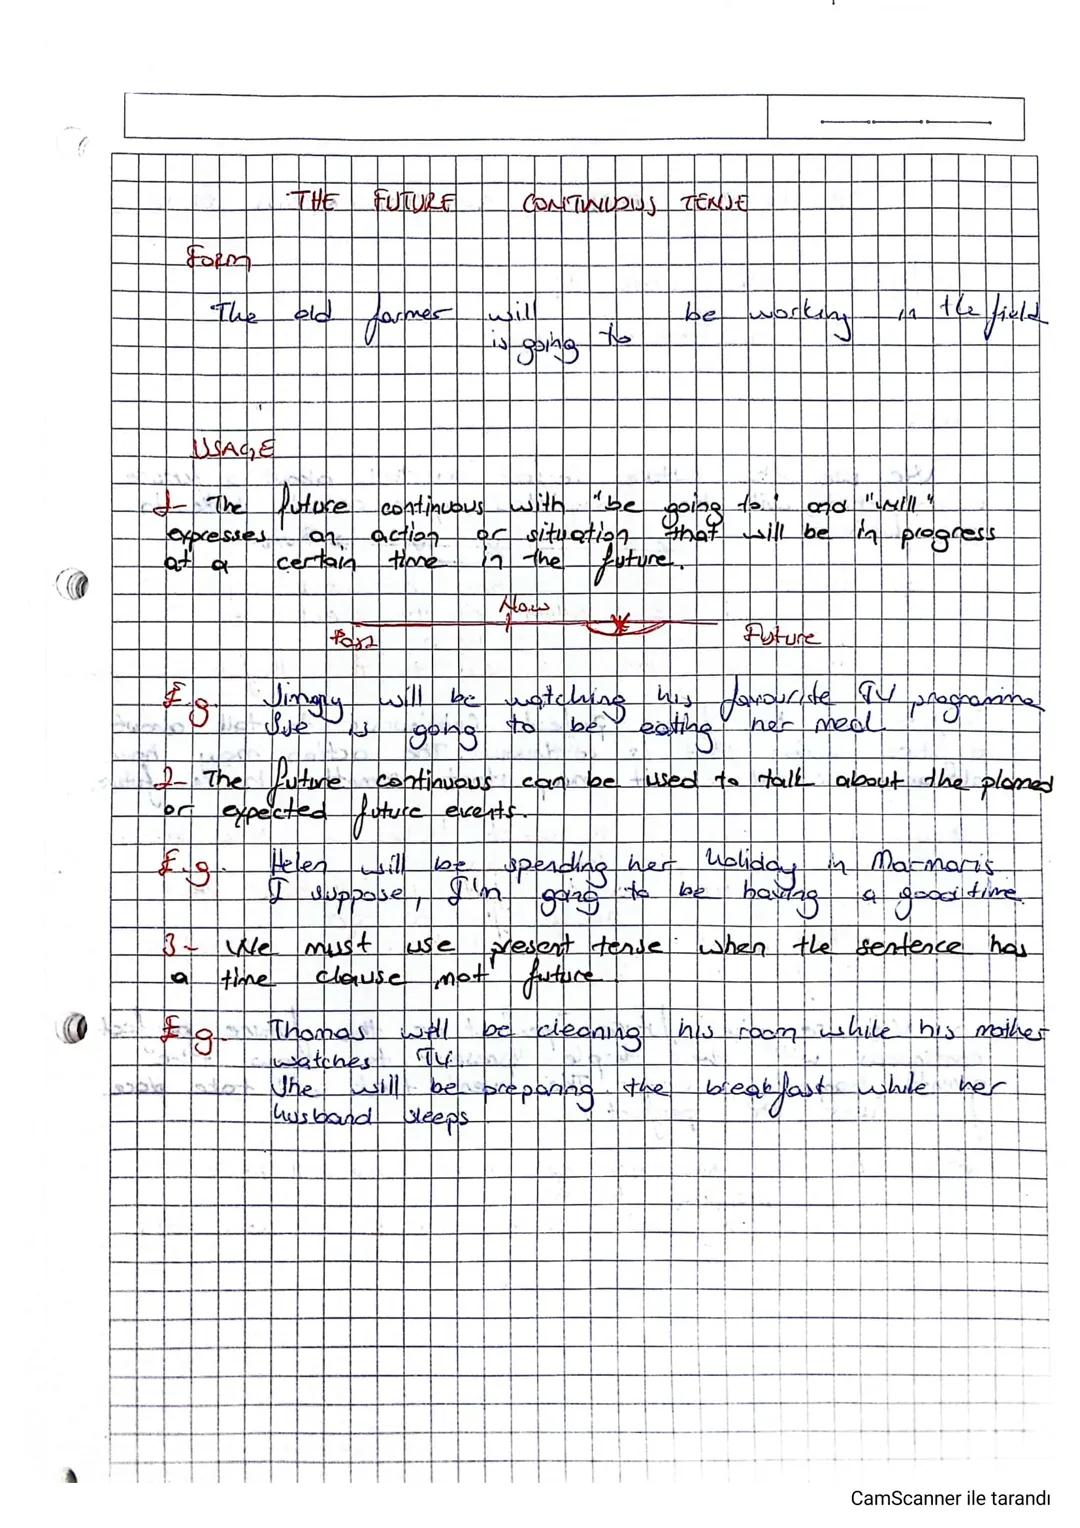 THE FUTURE CONTINUOUS TENSE
Form
The old farmer will be working in the field
is going to
USAGE
1- The future continuous with "be going to" and "will"
expresses an action or situation that will be in progress
at a certain time in the future.
Now
Past Future
E.g. will be watching his favourite TV programme
Sue is going to be eating her meal
2- The future continuous can be used to talk about the planed
or expected future events.
E.g. Helen will be spending her holiday in Marmaris
I suppose, I'm going to be having a good time
3- We must use present tense when the sentence has
a time clause, not future
E g. Thomas will be cleaning his room while his mother
watches TV.
She will be preparing the breakfast while her
husband sleeps
CamScanner ile tarandı